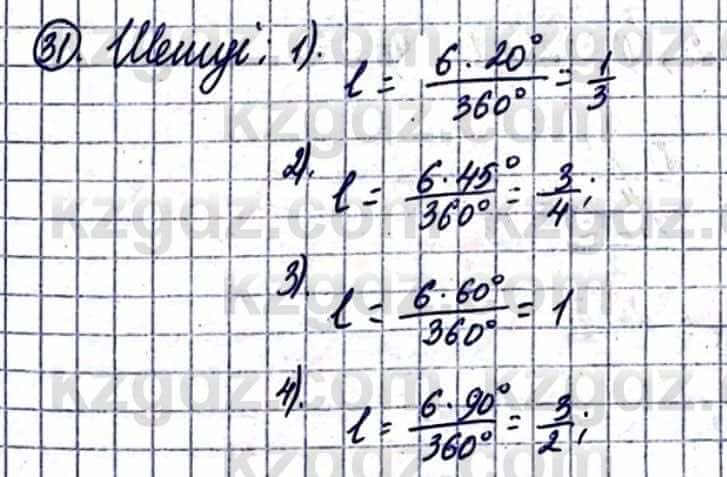 31. Шешуі: 1). l = 6 · 20° / 360° = 1/3
2). l = 6 · 45° / 360° = 3/4;
3). l = 6 · 60° / 360° = 1
4). l = 6 · 90° / 360° = 3/2;
kzgdz.com kzgdz.com
kzgdz.com kzgdz.com
kzgdz.com kzgdz.com
kzgdz.com kzgdz.com